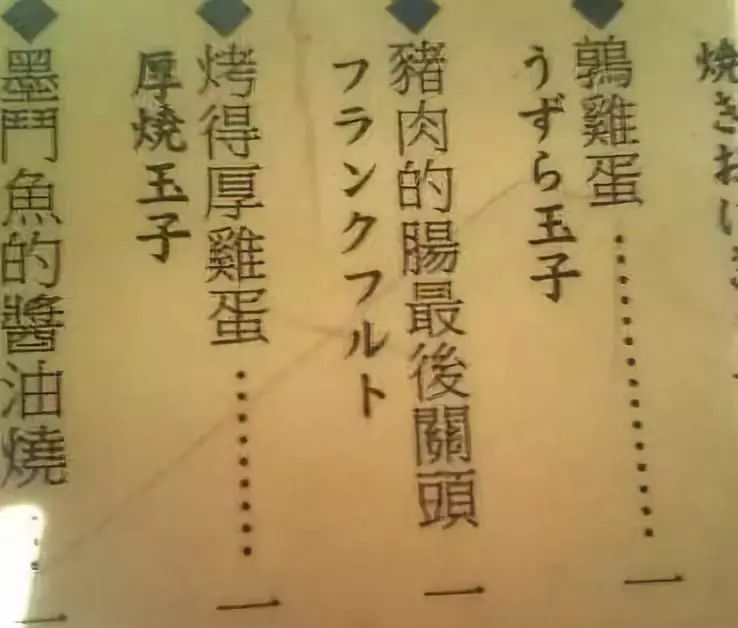 焼きおに
◆鶉雞蛋……………一
うずら玉子
◆豬肉的腸最後關頭 一
フランクフルト
◆烤得厚雞蛋…………一
厚焼玉子
◆墨鬥魚的醬油燒……一